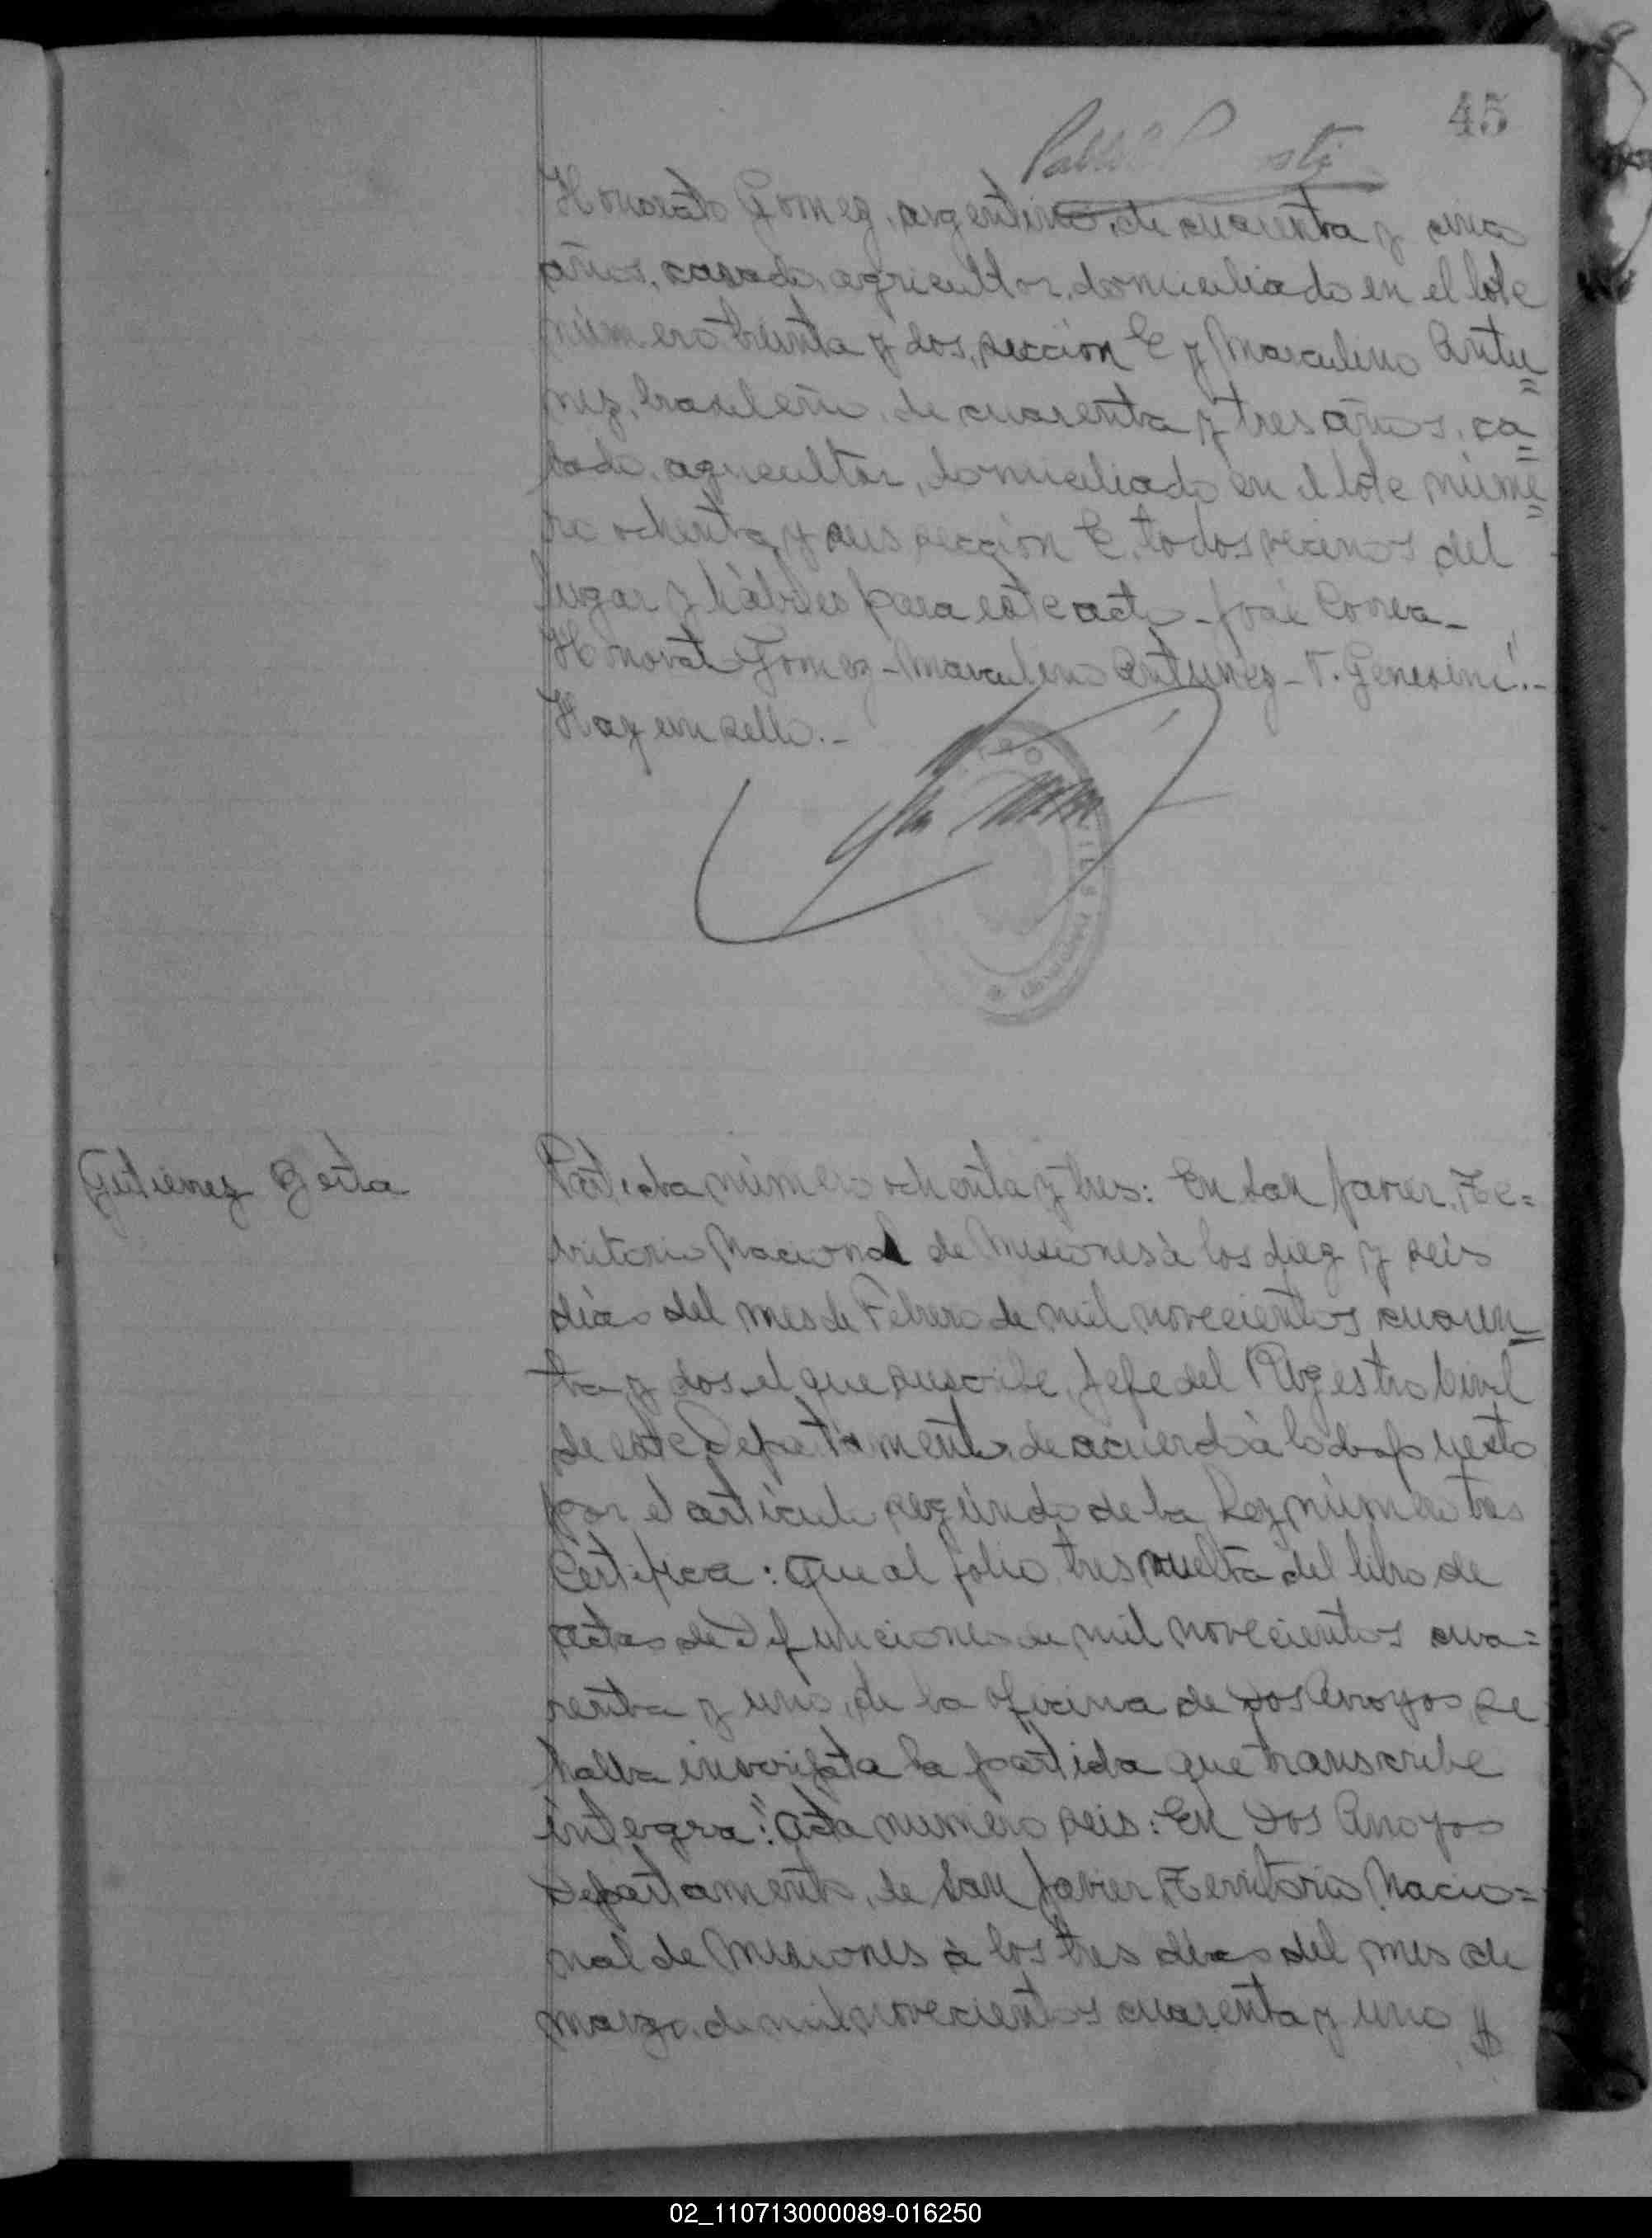 45
Honorato Gomez, argentino, de cuarenta y cinco
años, casado, agricultor, domiciliado en el lote
número treinta y dos, sección E y Marculino Antu=
nez, brasileño, de cuarenta y tres años, ca=
sado, agricultor, domiciliado en el lote núme=
ro ochenta y seis sección E, todos vecinos del
lugar y hábiles para este acto - José Correa -
Honorato Gomez - Marculino Antunez - V. Genesini".-
Hay un sello.-
Gutierrez Berta
Partida número ochenta y tres: En San Javier, Te=
rritorio Nacional de Misiones à los diez y seis
días del mes de Febrero de mil novecientos cuaren=
ta y dos, el que suscribe, Jefe del Registro Civil
de este Departamento, de acuerdo à lo dispuesto
por el artículo segundo de la Ley número tres
Certifica: Que al folio tres vuelta del libro de
actas de Defunciones de mil novecientos cua=
renta y uno, de la oficina de Dos Arroyos se
halla inscripta la partida que transcribe
íntegra: "Acta numero seis: En Dos Arroyos
Departamento, de San Javier, Territorio Nacio=
nal de Misiones à los tres días del mes de
marzo, de mil novecientos cuarenta y uno
02_110713000089-016250